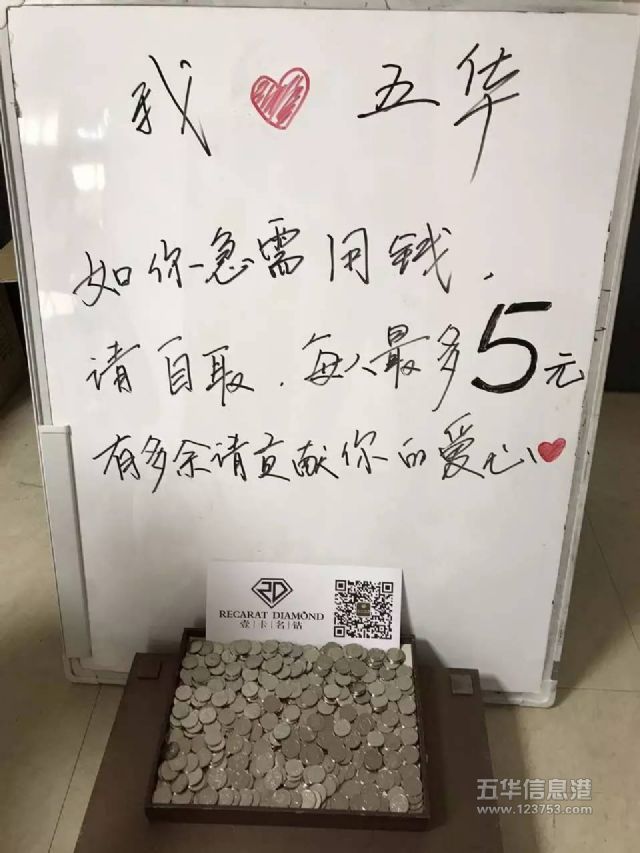 我 五华
如你急需用钱,
请自取.每人最多5元
有多余请贡献你的爱心
RD
RECARAT DIAMOND
壹|卡|名|钻
五华信息港
www.123753.com